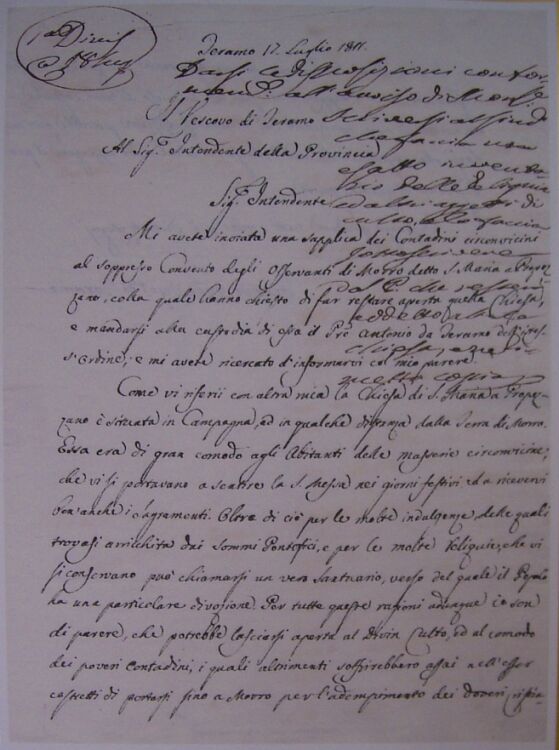 1a Divis
Teramo 17. Luglio 1811.
Il Vescovo di Teramo
Al Sig.e Intendente della Provincia
Sig.e Intendente
Mi avete inviata una supplica dei Contadini circonvicini
al soppresso Convento degli Osservanti di Morro detto S. Maria a Propez-
zano, colla quale hanno chiesto di far restare aperta quella Chiesa,
e mandarsi alla custodia di essa il Pre Antonio da Teramo dell'istes-
s'Ordine; e mi avete ricercato d'informarvi col mio parere.
Come vi riferii con altra mia la Chiesa di S. Maria a Propez-
zano è situata in Campagna, ed in qualche distanza dalla Terra di Morro.
Essa era di gran comodo agli Abitanti delle masserie circonvicine;
che vi si portavano a sentire la S. Messa nei giorni festivi ed a ricevervi
ben'anche i Sagramenti. Oltre di ciò per le molte indulgenze, delle quali
trovasi arricchita dai Sommi Pontefici, e per le molte Reliquie, che vi
si conservano può chiamarsi un vero Santuario, verso del quale il Popolo
ha una particolare divozione. Per tutte queste ragioni adunque io son
di parere, che potrebbe lasciarsi aperta al Divin Culto, ed al comodo
dei poveri Contadini, i quali altrimenti soffrirebbero assai nell'esser
costretti di portarsi fino a Morro per l'adempimento dei doveri cristia-
Darsi le disposizioni confor
all'avviso di Monsr
Scrivesi al Sind
che faccia un
esatto inventa
rio delle Reliquie
ed altri oggetti di
culto, e lo faccia
sottoscrivere
dal P. che resterà
addetto alla
chiesa, e ne ri-
metta copia